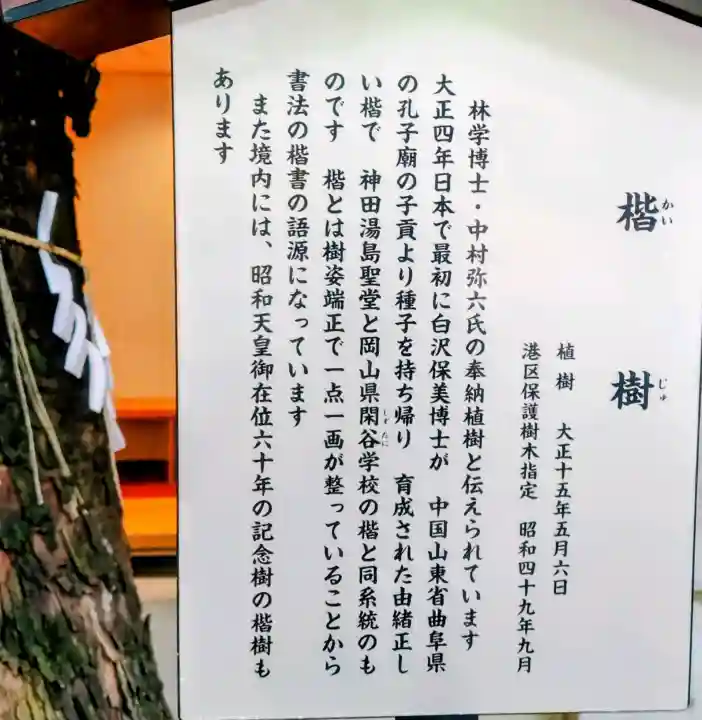 楷樹
かいじゅ
植樹 大正十五年五月六日
港区保護樹木指定 昭和四十九年九月
林学博士・中村弥六氏の奉納植樹と伝えられています
大正四年日本で最初に白沢保美博士が 中国山東省曲阜県
の孔子廟の子貢より種子を持ち帰り 育成された由緒正し
い楷で 神田湯島聖堂と岡山県閑谷学校の楷と同系統のも
しずたに
のです 楷とは樹姿端正で一点一画が整っていることから
書法の楷書の語源になっています
また境内には、昭和天皇御在位六十年の記念樹の楷樹も
あります